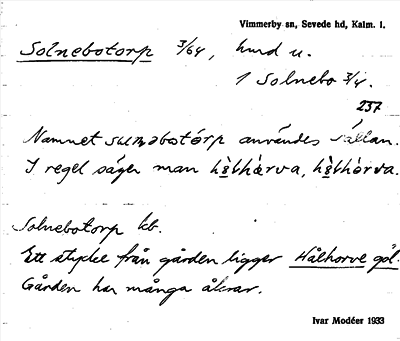 Vimmerby sn, Sevede hd, Kalm. l.
Solnebotorp 3/64, hmd u.
1 Solnebo 3/4.
237
Namnet suməbotórp användes sällan.
I regel säger man hòlhàrva, hòlhórva.
Solnebotorp kb.
Ett stycke från gården ligger Hålhorve göl.
Gården har många åkrar.
Ivar Modéer 1933